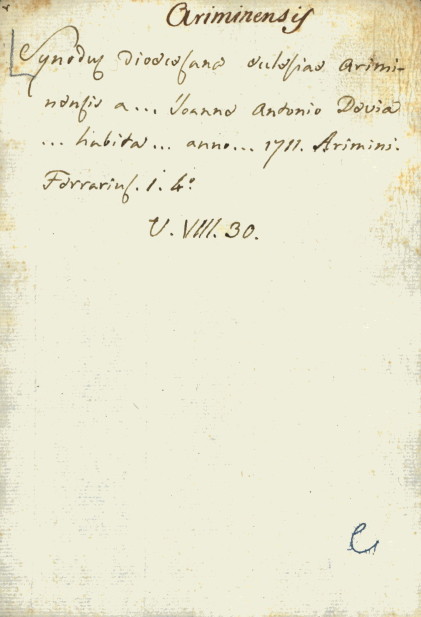 Ariminensis
Synodus dioecesana ecclesiae Arimi-
nensis a... Joanne Antonio Davia
... habita... anno... 1711. Arimini.
Ferrarius. 1. 4°.
V. VIII. 30.
C